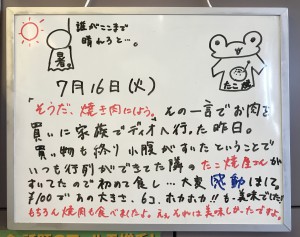 誰がここまで
晴れろと…。
暑。
7月16日(火)
たこ焼
「そうだ、焼き肉にしよう。」その一言でお肉を
買いに家族でディオへ行った昨日。
買い物も終り小腹がすいたということで
いつも行列ができてた隣のたこ焼屋さんが
すいてたので初めて食し…大変感動しまして。
¥100であの大きさ、6コ、ホカホカ!!も、美味でした
もちろん焼肉も食べましたよ。えぇ、それは美味しかったですよ。